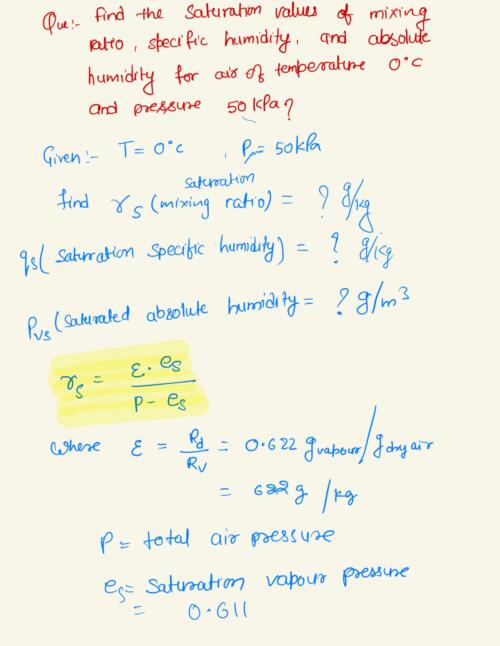 Que:- find the saturation values of mixing
ratio, specific humidity, and absolute
humidity for air of temperature 0°c
and pressure 50 kPa?
Given:- T= 0°c , P = 50kPa
saturation
find rs (mixing ratio) = ? g/kg
qs( saturation specific humidity) = ? g/kg
ρvs (saturated absolute humidity = ? g/m³
rs = ε · es / P - es
where ε = Rd / Rv = 0.622 g vapour / g dry air
= 622 g /kg
P = total air pressure
es = saturation vapour pressure
= 0.611